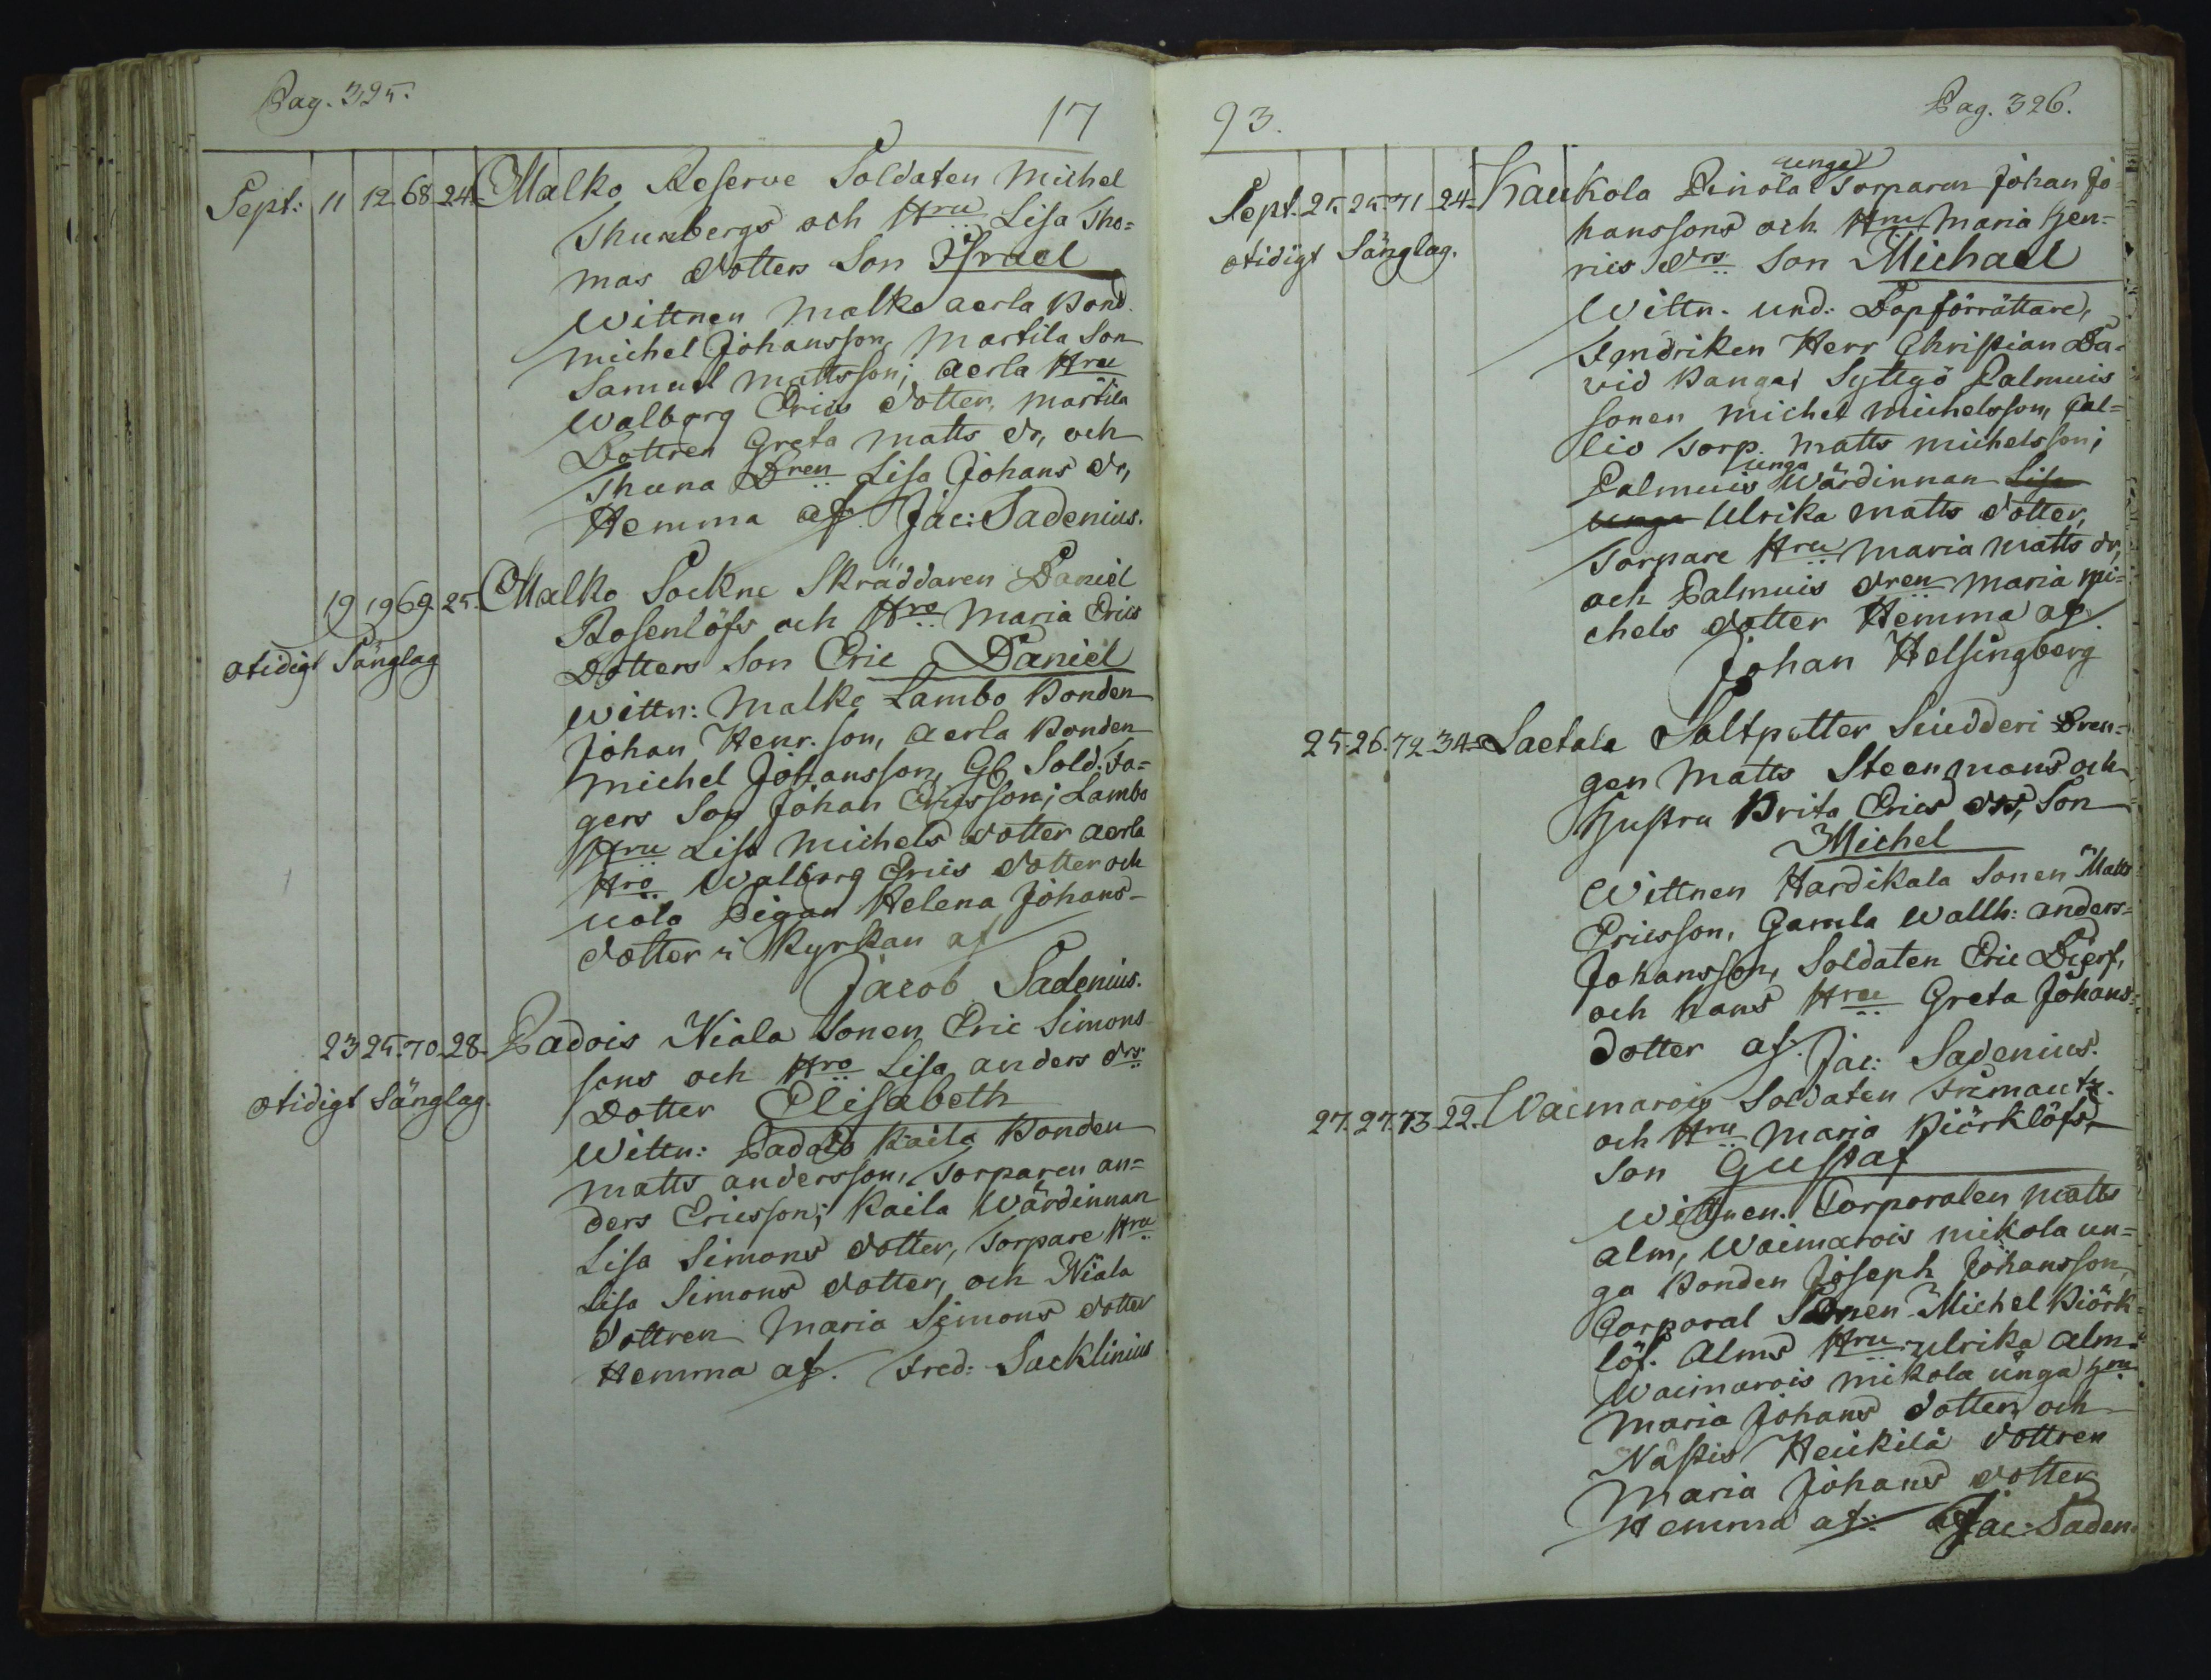 Pag. 325.
17
Sept: 11 12 68 24. Malko Reserve Soldaten Michel
Thunbergs och Hru Lisa Tho=
mas dotters Son Israel
Wittnen Malko aerla Bond.
Michel Johansson, Martila Son
Samuel Mattsson; aerla Hru
Walborg Erics dotter, Martila
Dottren Greta Matts dr, och
Thuna Dren Lisa Johans dr,
Hemma af. Jac: Sadenius.
19 19 69. 25. Malko Sockne Skräddaren Daniel
Rosenlöfs och Hro Maria Erics
otidigt Sänglag
Dotters Son Eric Daniel
Wittn: Malko Lambo Bonden
Johan Henr. son, aerla Bonden
Michel Johansson, Gl. Sold. Fa=
gers Son Johan Ericsson; Lambo
Hru Lisa Michels dotter aerla
Hro Walborg Erics dotter och
Pigan Helena Johans=
dotter i Kyrkan af
Jacob Sadenius.
23 25. 70. 28. Padois Niala Sonen Eric Simons
sons och Hro Lisa anders drs:
otidigt Sänglag.
Dotter Elisabeth
Wittn: Padois Kaila Bonden
Matts andersson, Torparen an=
ders Ericsson; Kaila Wärdinnan
Lisa Simons dotter, Torpare Hru
Lisa Simons dotter, och Niala
dottren Maria Simons dotter
Hemma af. Fred: Sacklinius
93.
Pag. 326.
unga
Sept. 25. 25. 71. 24. Kaukola Pinola Torparen Johan Jo
hanssons och Hru Maria Hen=
otidigt Sänglag.
rics drs Son Michael
Wittn. und: Dopförrättare,
Fendriken Herr Christian Da=
vid Bangs; Syttyö Palmuis
sonen Michel Michelsson, Pal=
lio Torp. Matts Michelsson;
unga
Palmuis Wärdinnan Lisa
unga Ulrika Matts dotter,
Torpare Hru Maria Matts dr,
och Palmuis dren Maria Mi=
chels dotter Hemma af
Johan Helsingberg
25. 26. 72. 34. Laetala Saltpetter Siudderi Dren=
gen Matts Steenmans och
Hustru Brita Erics drs, Son
Michel
Wittnen Hardikala Sonen Matts
Ericsson, Gamla Wallh: anders=
Johansson, Soldaten Eric Dierf,
och hans Hru Greta Johans=
dotter af. Jac: Sadenius.
27. 27. 73. 22. Waimarois Soldaten
och Hru Maria Biörklöfs,
Son Gustaf
Wittnen. Corporalen Matts
alm, Waimarois Mikola un=
ga Bonden Joseph Johansson,
Corporal Sonen Michel Biörk=
löf. Alms Hru Ulrika Alm.
Waimarois Mikola unga Hru
Maria Johans dotter, och
Nästis Heikilä dottren
Maria Johans dotter
Hemma af: af Jac: Saden.